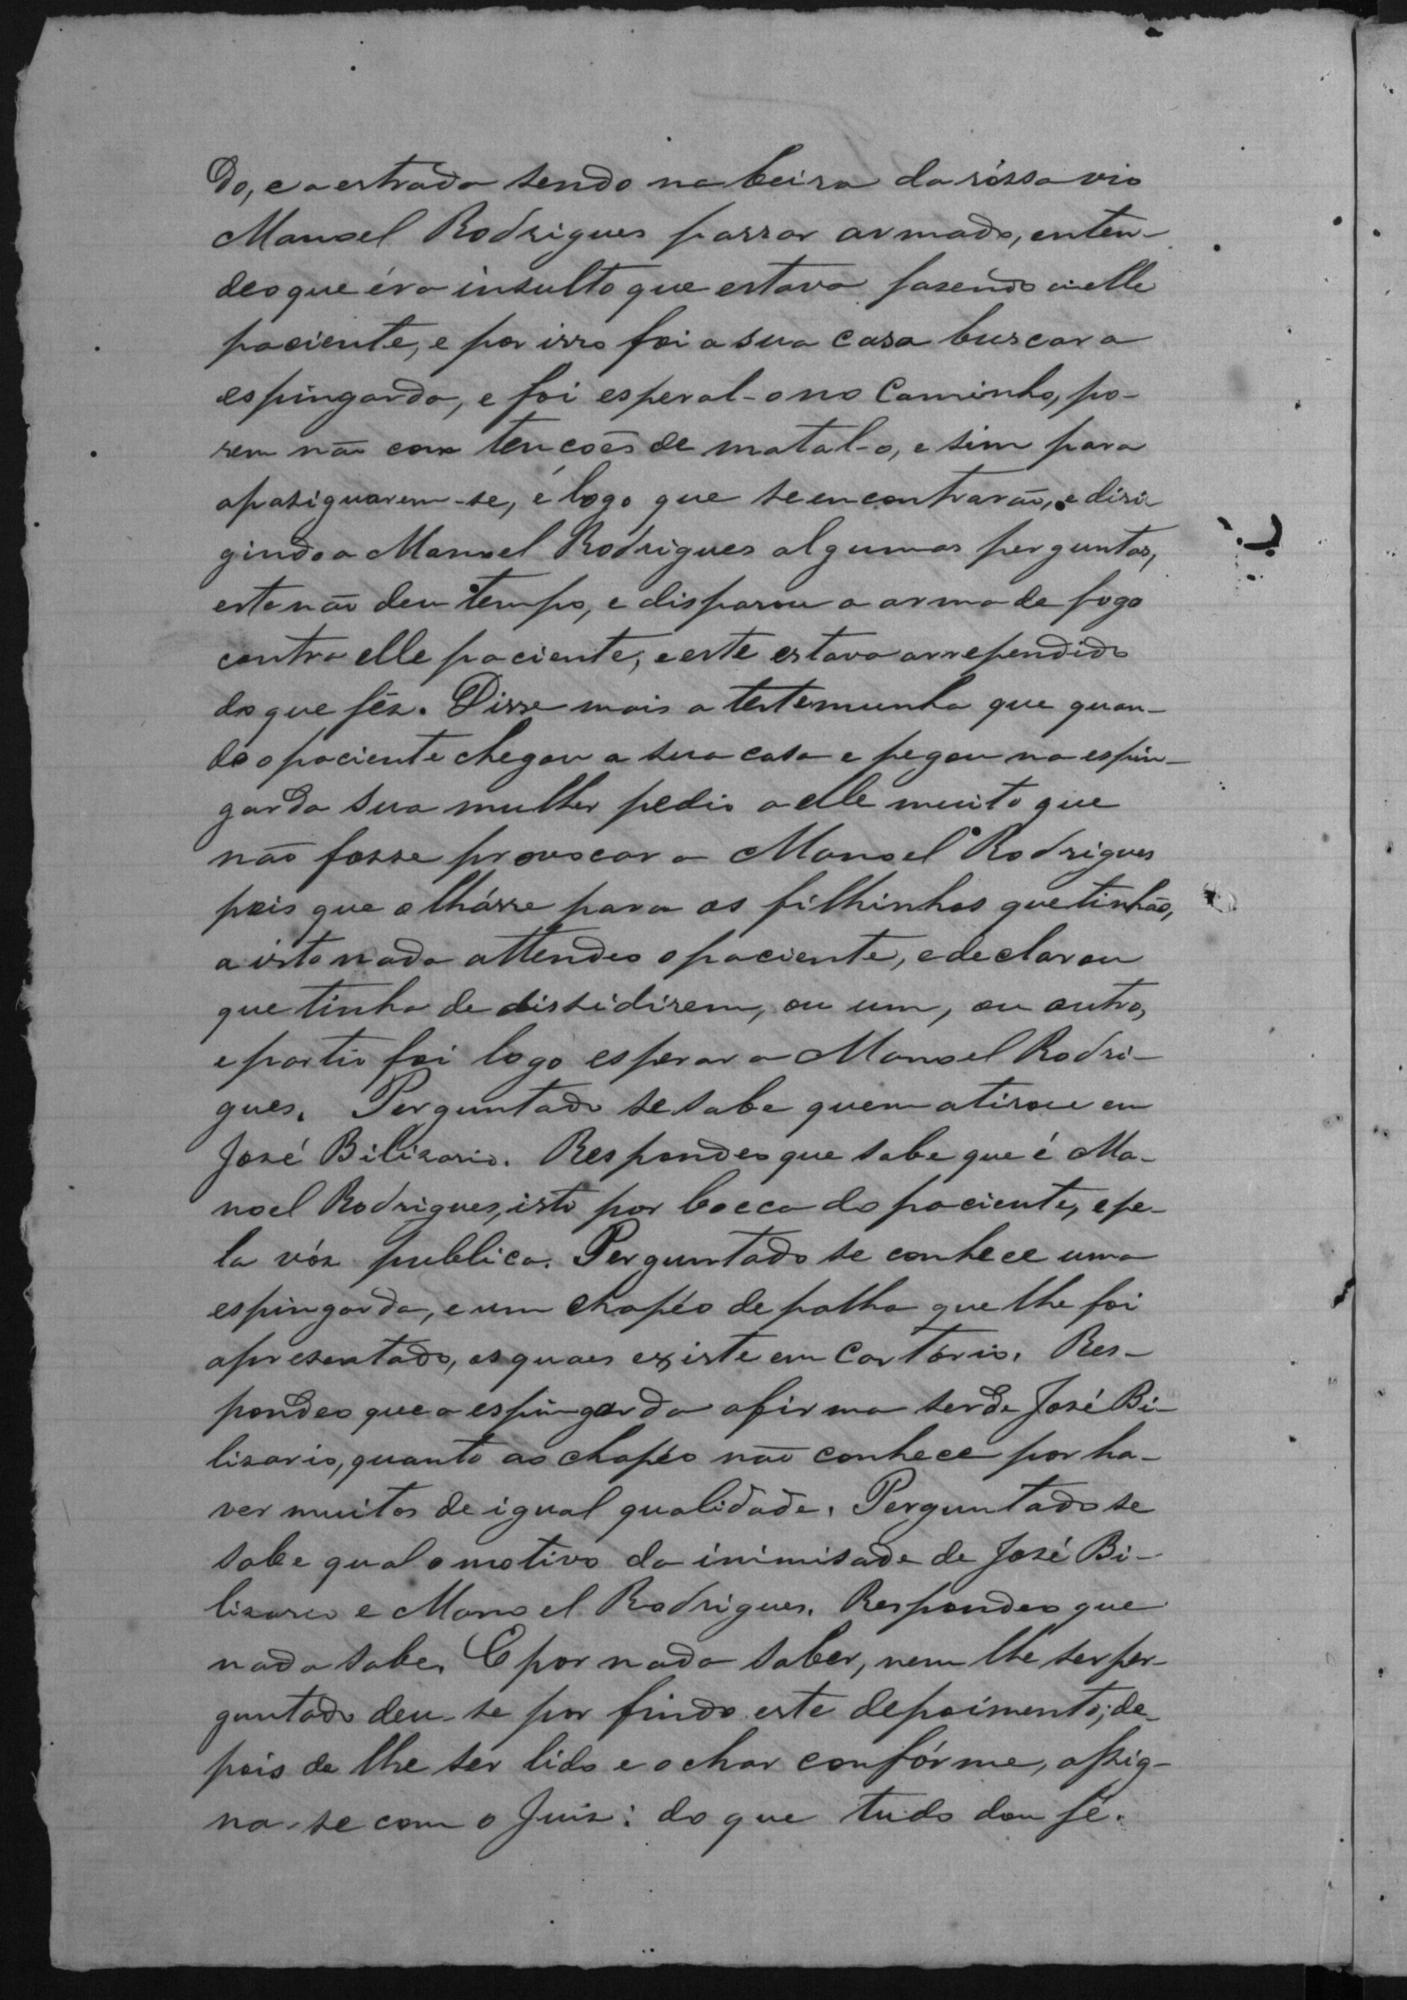 do, e a estrada sendo na beira da róssa vio
Manoel Rodrigues passar armado, enten-
deo que éra insulto que estava fasendo a elle
paciente, e por isso foi a sua casa buscar a
espingarda, e foi esperal-o no Caminho, po-
rem não com tencoẽs de matal-o, e sim para
apasiguarem-se, é logo que se encontrarão, e diri
gindo a Manoel Rodrigues algumas perguntas,
este não deu tempo, e disparou a arma de fogo
contra elle paciente; e este estava arrependido
do que fêz. Disse mais a testemunha que quan-
do o paciente chegou a sua casa e pegou na espin-
garda sua mulher pedio a elle muito que
não fosse provocar a Manoel Rodrigues
pois que olhásse para os filhinhos que tinhão,
a isto nada attendeo o paciente, e declarou
que tinha de dissidirem, ou um, ou outro,
e partio foi logo esperar a Manoel Rodri-
gues. Perguntado se sabe quem atirou em
José Bilizario. Respondeo que sabe que é Ma-
noel Rodrigues, isto por bocca do paciente, e pe-
la vóz publica. Perguntado se conhece uma
espingarda, e um chapéo de palha que lhe foi
apresentado, os quaes existe em Cartório. Res-
pondeo que a espingarda afirma ser de José Bi-
lizario, quanto ao chapéo não conhece por ha-
ver muitos de igual qualidade. Perguntado se
sabe qual o motivo da inimisade de José Bi-
lizario e Manoel Rodrigues. Respondeo que
nada sabe. E por nada saber, nem lhe ser per-
guntado deu-se por findo este depoimento; de-
pois de lhe ser lido e achar confórme, assig-
na-se com o Juiz: do que tudo dou fé.